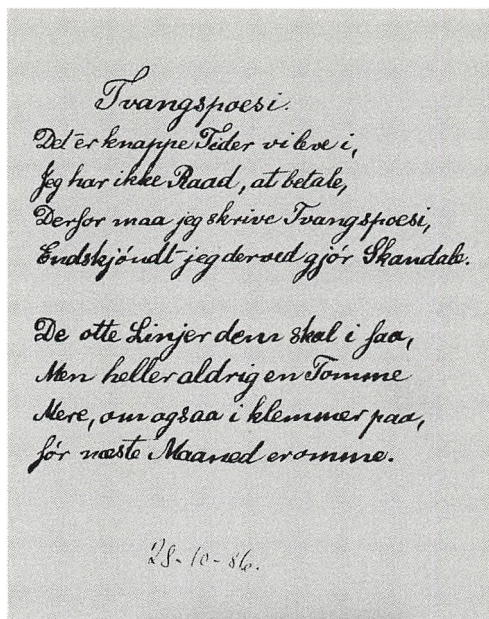 Tvangspoesi.
Det er knappe Tider vi leve i,
Jeg har ikke Raad, at betale,
Derfor maa jeg skrive Tvangspoesi,
Endskjöndt jeg derved gjör Skandale.
De otte Linjer dem skal i faa,
Men heller aldrig en Tomme
Mere, om ogsaa i klemmer paa,
för næste Maaned er omme.
28-10-86.